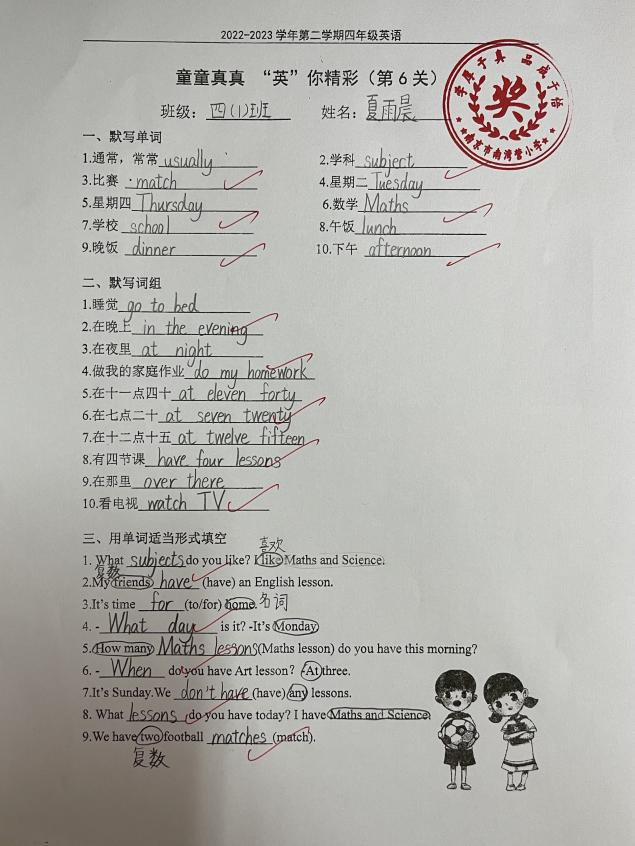 2022-2023学年第二学期四年级英语
童童真真 “英”你精彩（第6关）
班级: 四(1)班 姓名: 夏雨晨
学厚于真 品成于悟
奖
★★南京市南湾营小学★★
一、默写单词
1.通常，常常 usually 2.学科 subject
3.比赛 match 4.星期二 Tuesday
5.星期四 Thursday 6.数学 Maths
7.学校 school 8.午饭 lunch
9.晚饭 dinner 10.下午 afternoon
二、默写词组
1.睡觉 go to bed
2.在晚上 in the evening
3.在夜里 at night
4.做我的家庭作业 do my homework
5.在十一点四十 at eleven forty
6.在七点二十 at seven twenty
7.在十二点十五 at twelve fifteen
8.有四节课 have four lessons
9.在那里 over there
10.看电视 watch TV
三、用单词适当形式填空
喜欢
1. What subjects do you like? I like Maths and Science.
复数
2.My friends have (have) an English lesson.
3.It's time for (to/for) home. 名词
4. - What day is it? -It's Monday.
5.How many Maths lessons(Maths lesson) do you have this morning?
6. - When do you have Art lesson? -At three.
7.It's Sunday.We don't have (have) any lessons.
8. What lessons do you have today? I have Maths and Science.
9.We have two football matches (match).
复数